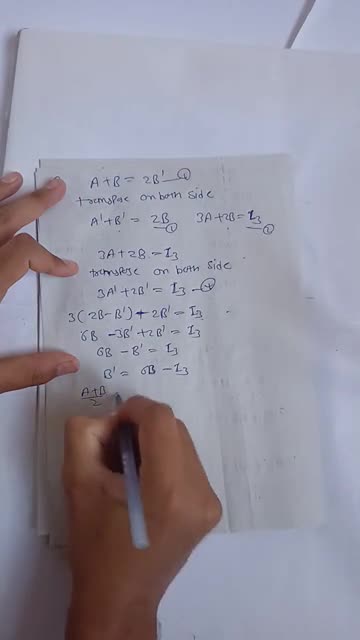 A+B = 2B' —④
transpose on both side
A'+B' = 2B —① 3A+2B = I₃ —②
3A+2B = I₃
transpose on both side
3A'+2B' = I₃ —④
3(2B-B') + 2B' = I₃
6B -3B'+2B' = I₃
6B - B' = I₃
B' = 6B - I₃
A+B/2